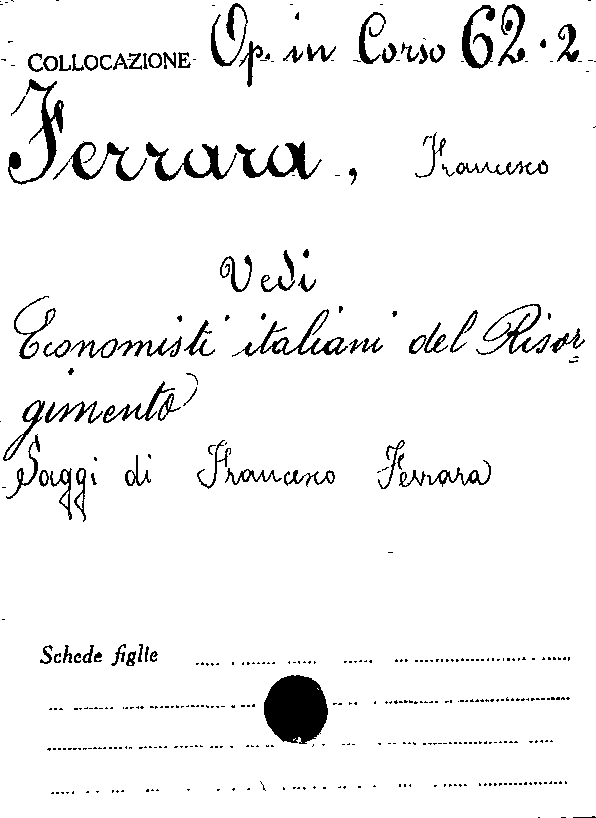 COLLOCAZIONE Op. in Corso 62.2
Ferrara, Francesco
Vedi
Economisti italiani del Risor=
gimento
Saggi di Francesco Ferrara
Schede figlie